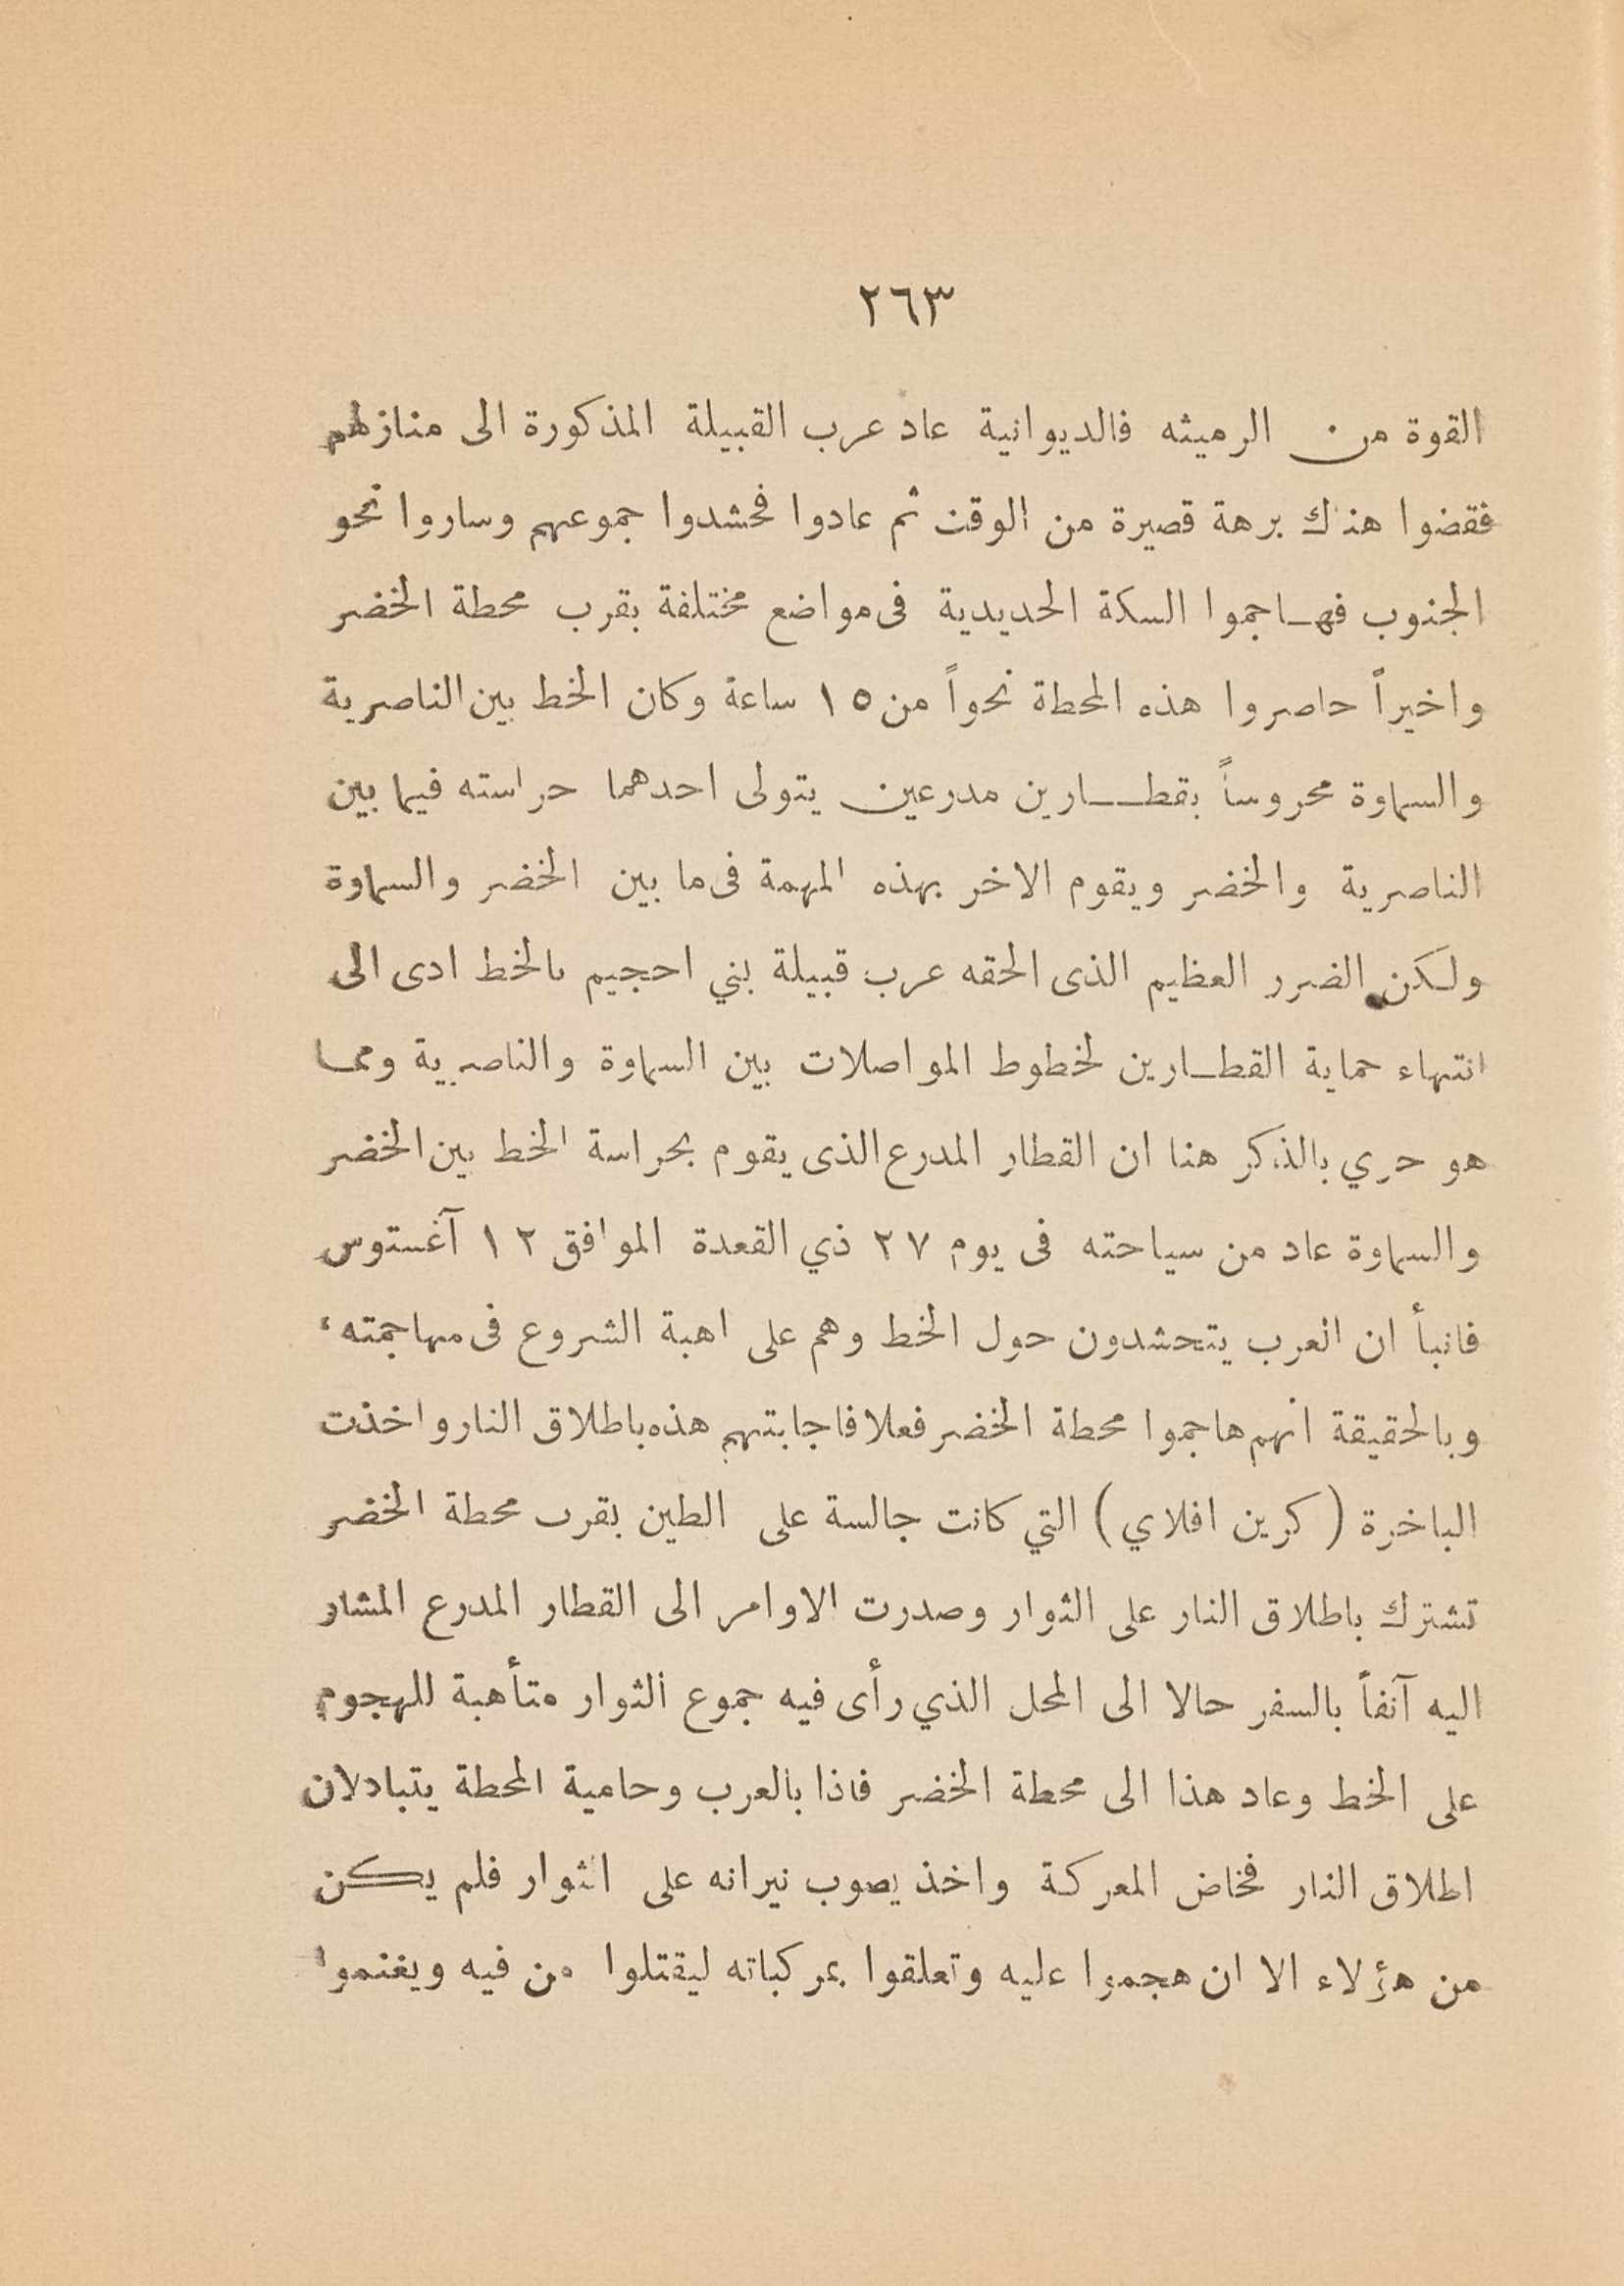 ٢٦٣
القوة من الرميثه فالديوانية عاد عرب القبيلة المذكورة الى منازلهم
فقضوا هناك برهة قصيرة من الوقت ثم عادوا فحشدوا جموعهم وساروا نحو
الجنوب فهـاجموا السكة الحديدية فى مواضع مختلفة بقرب محطة الخضر
واخيراً حاصروا هذه المحطة نحواً من ١٥ ساعة وكان الخط بين الناصرية
والسماوة محروساً بقطـــارين مدرعين يتولى احدهما حراسته فيما بين
الناصرية والخضر ويقوم الاخر بهذه المهمة فى ما بين الخضر والسماوة
ولكن الضرر العظيم الذى الحقه عرب قبيلة بني احجيم بالخط ادى الى
انتهاء حماية القطـارين لخطوط المواصلات بين السماوة والناصرية ومما
هو حري بالذكر هنا ان القطار المدرع الذى يقوم بحراسة الخط بين الخضر
والسماوة عاد من سياحته فى يوم ٢٧ ذي القعدة الموافق ١٢ آغستوس
فانبأ ان العرب يتحشدون حول الخط وهم على اهبة الشروع فى مهاجمته ،
وبالحقيقة انهم هاجموا محطة الخضر فعلا فاجابتهم هذه باطلاق النار واخذت
الباخرة ( كرين افلاي ) التي كانت جالسة على الطين بقرب محطة الخضر
تشترك باطلاق النار على الثوار وصدرت الاوامر الى القطار المدرع المشار
اليه آنفاً بالسفر حالا الى المحل الذي رأى فيه جموع الثوار متأهبة للهجوم
على الخط وعاد هذا الى محطة الخضر فاذا بالعرب وحامية المحطة يتبادلان
اطلاق النار فخاض المعركة واخذ يصوب نيرانه على الثوار فلم يكن
من هؤلاء الا ان هجموا عليه وتعلقوا بمركباته ليقتلوا من فيه ويغنموا